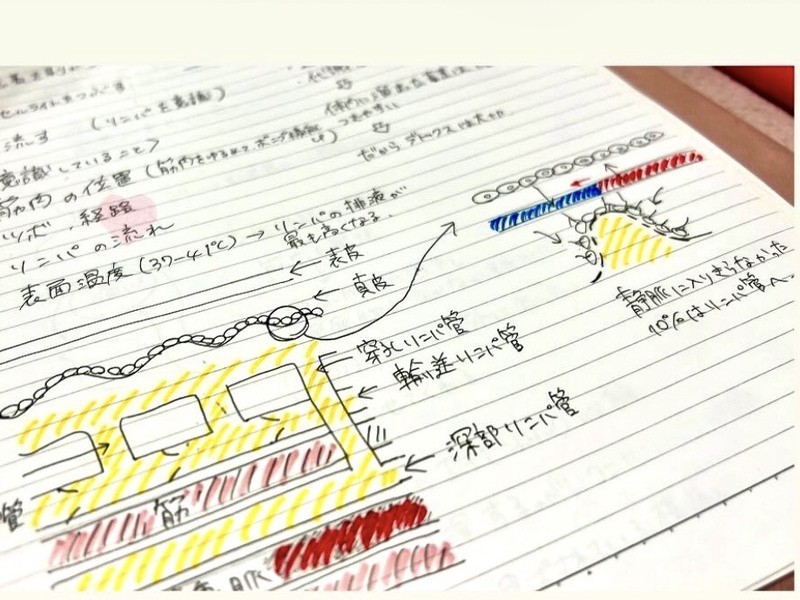 セルライトをつぶす
流す (リンパを意識)
だから デトックスは大切
意識していること>
筋肉の位置 (筋肉をゆるめて、ポンプ機能
ツボ、経絡
リンパの流れ
表面温度 (37-41℃) → リンパの排液が
最も高くなる。
表皮
真皮
静脈に入りきらなかった
10%はリンパ管へ。
穿孔リンパ管
輸出リンパ管
深部リンパ管
管
筋
脈